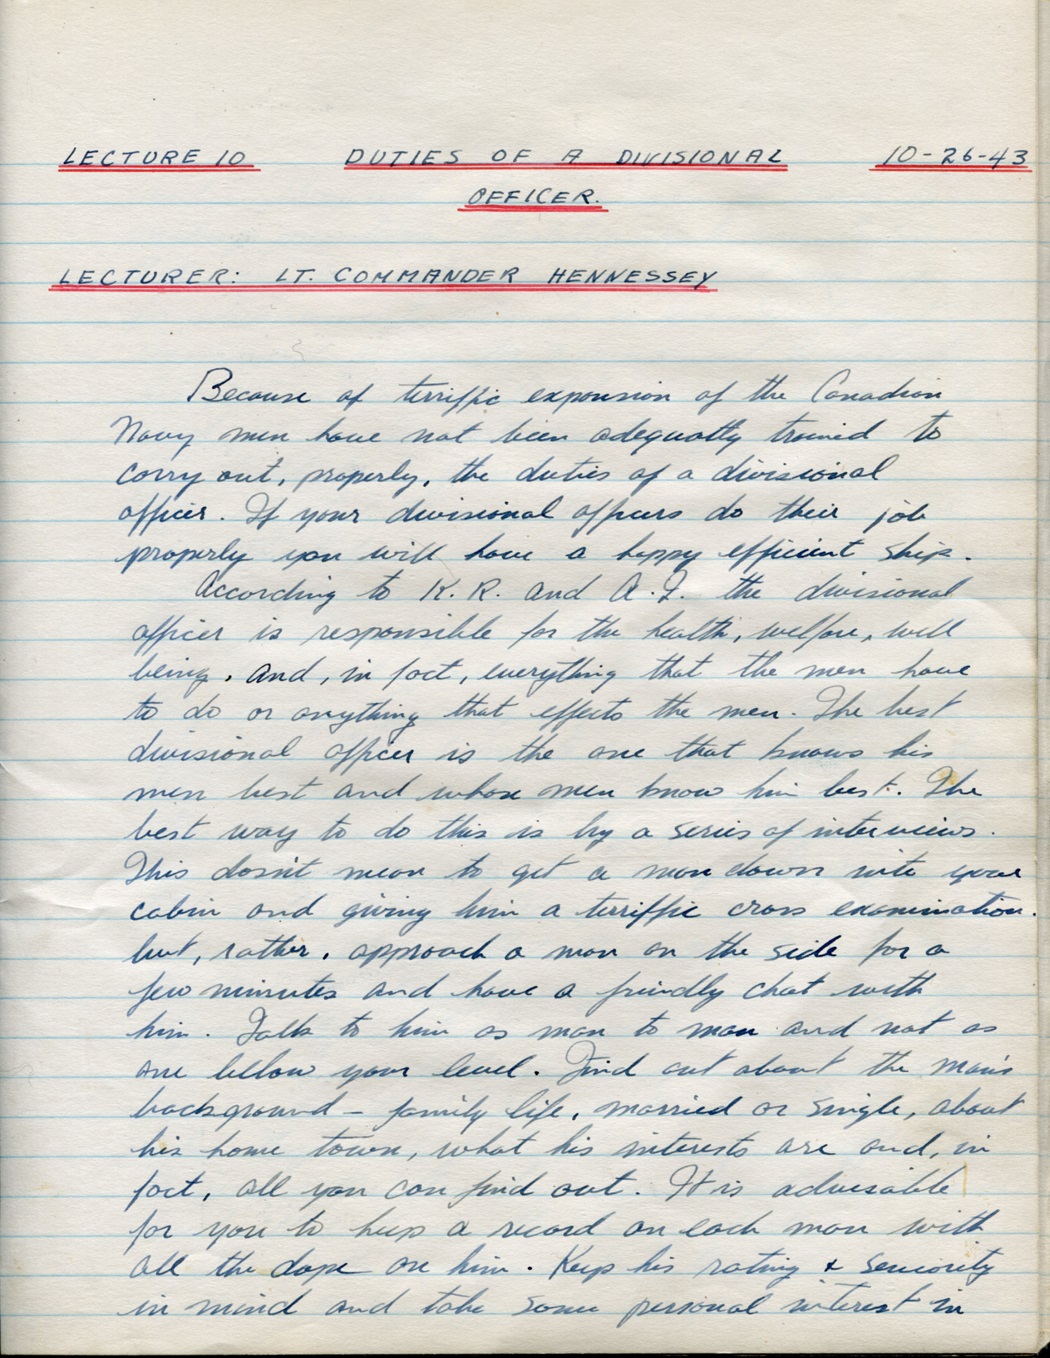 LECTURE 10 DUTIES OF A DIVISIONAL 10-26-43
OFFICER.
LECTURER: LT. COMMANDER HENNESSEY
Because of terriffic expansion of the Canadian
Navy men have not been adequatly trained to
carry out, properly, the duties of a divisional
officer. If your divisional officers do their job
properly you will have a happy efficient ship.
According to K. R. and A. I. the divisional
officer is responsible for the health, welfare, well
being, and, in fact, everything that the men have
to do or anything that effects the men. The best
divisional officer is the one that knows his
men best and whose men know him best. The
best way to do this is by a series of interviews.
This doesn't mean to get a man down into your
cabin and giving him a terriffic cross examination.
but, rather, approach a man on the side for a
few minutes and have a friendly chat with
him. Talk to him as man to man and not as
one bellow your level. Find out about the man's
background - family life, married or single, about
his home town, what his interests are and, in
fact, all you can find out. It is adviseable
for you to keep a record on each man with
all the dope on him. Keep his rating & seniority
in mind and take some personal interest in